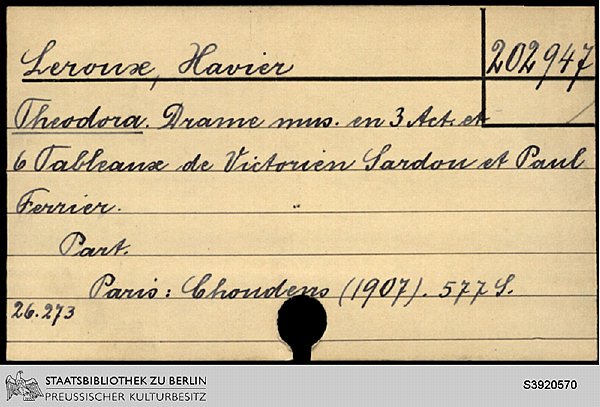 Leroux, Xavier
202947
Theodora. Drame mus. en 3 Act. et
6 Tableaux de Victorien Sardou et Paul
Ferrier.
Part.
Paris: Choudens (1907). 577 S.
26.273
STAATSBIBLIOTHEK ZU BERLIN
PREUSSISCHER KULTURBESITZ
S3920570